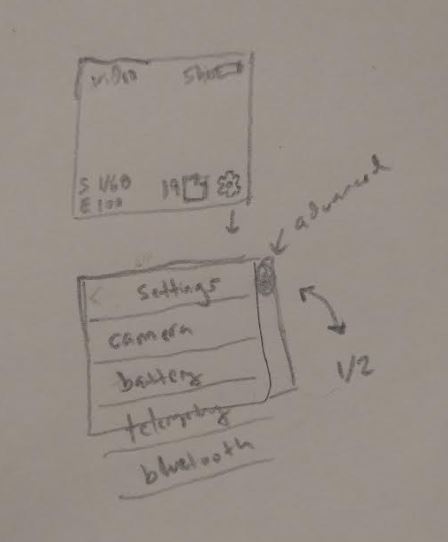 video
S 1/60
E 100
19
advanced
< settings
camera
battery
telemetry
bluetooth
1/2